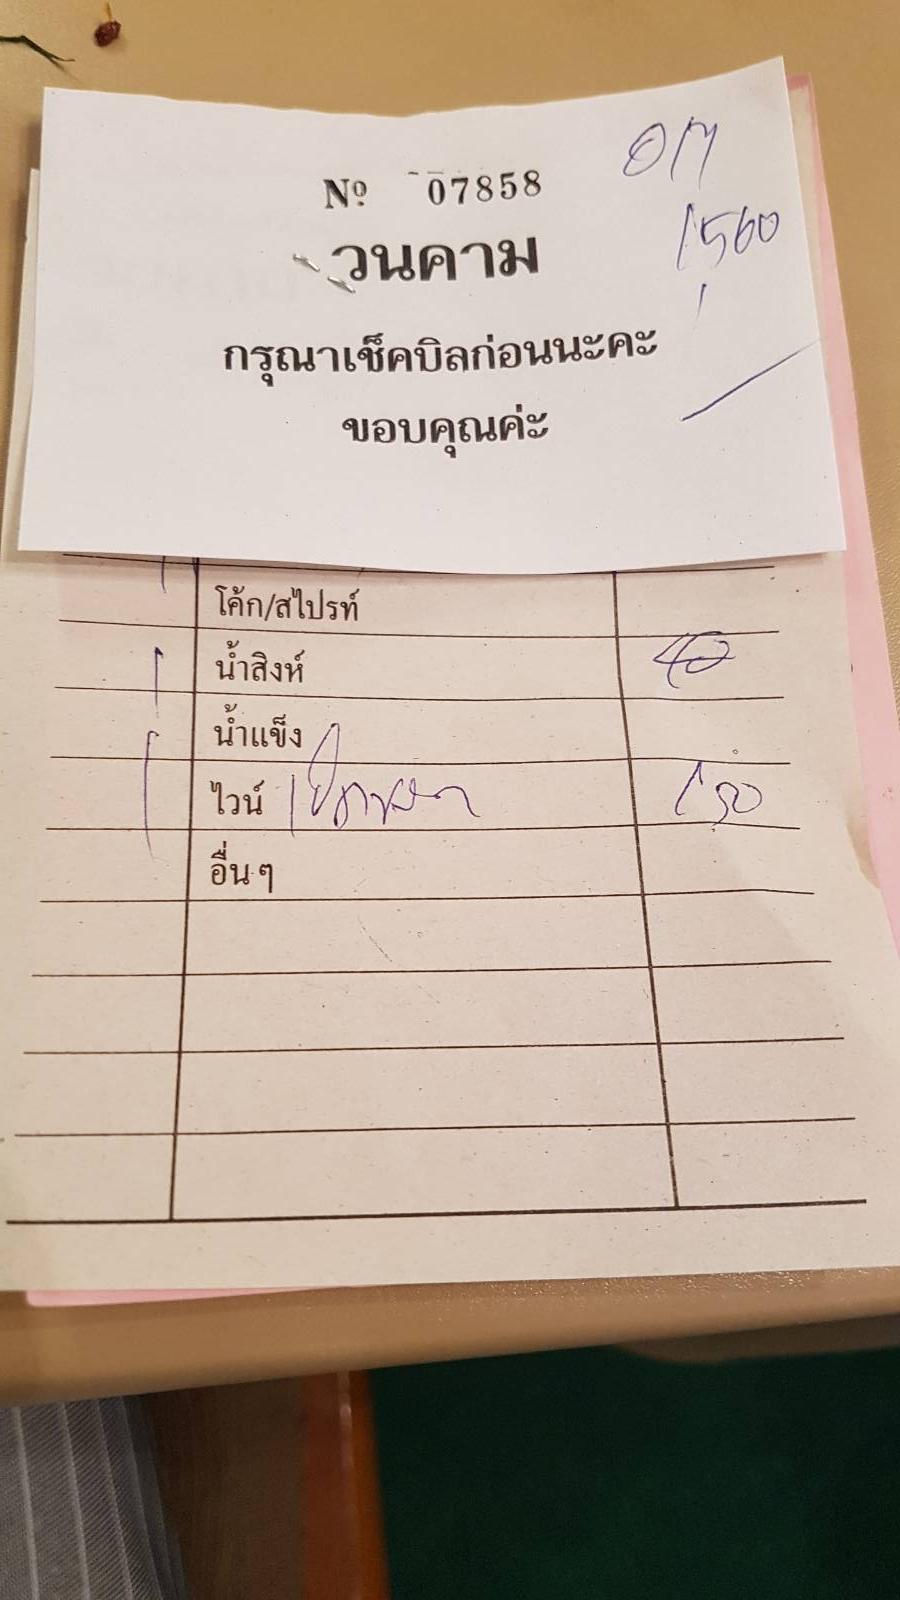 Nº 07858
วนคาม
1560
กรุณาเช็คบิลก่อนนะคะ
ขอบคุณค่ะ
โค้ก/สไปรท์
1 น้ำสิงห์ 40
น้ำแข็ง
1 ไวน์ 150
อื่นๆ